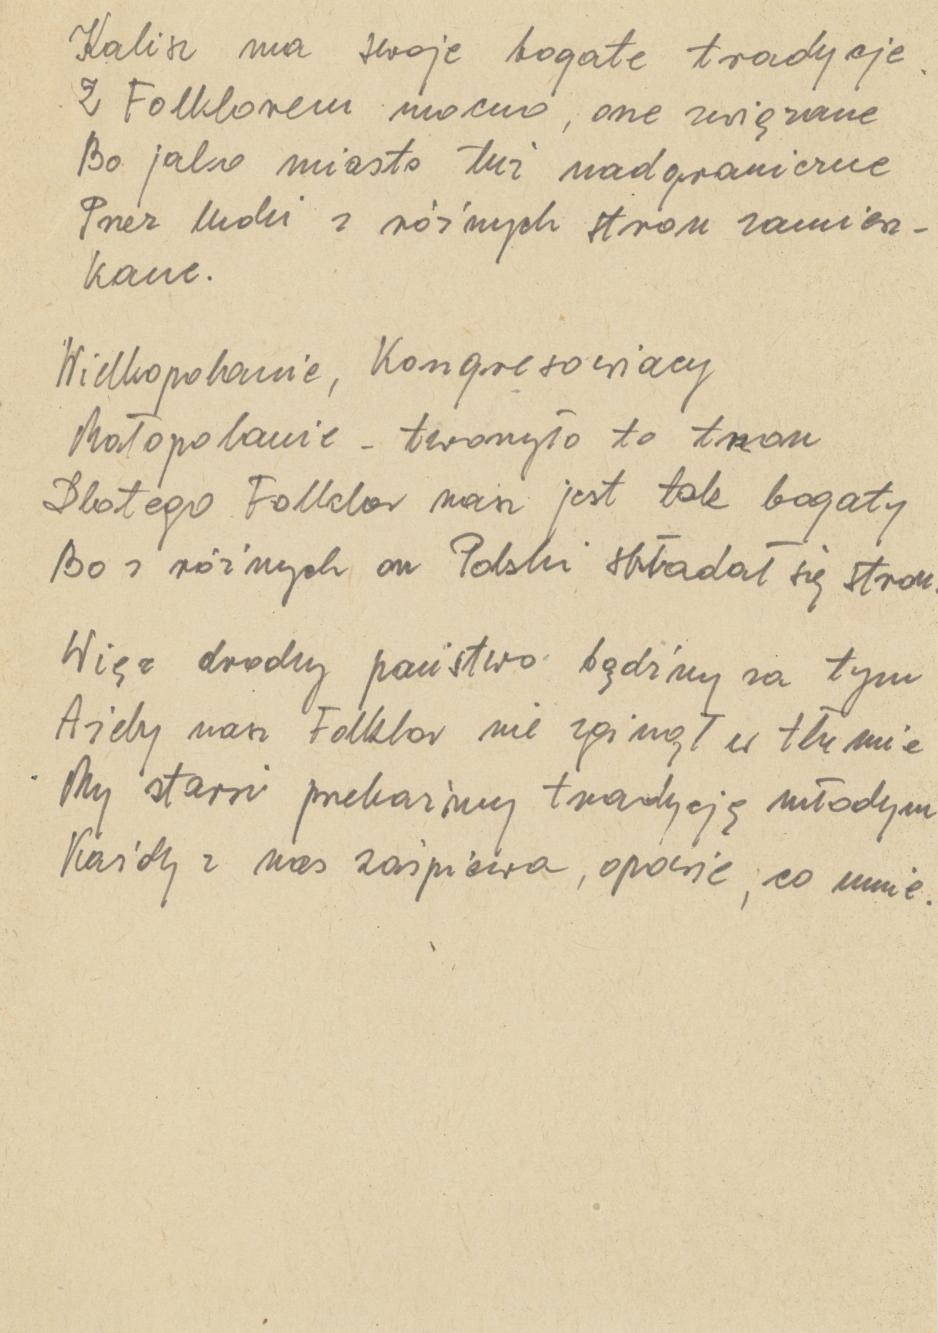 Kalisz ma swoje bogate tradycje.
Z Folklorem mocno, one związane
Bo jako miasto tuż nadgraniczne
Przez ludzi z różnych stron zamiesz-
kane.
Wielkopolanie, Kongresowiacy
Małopolanie - tworzyło to tron
Dlatego Folklor nasz jest tak bogaty
Bo z różnych on Polski składał się stron.
Więc drodzy państwo bądźmy za tym
Ażeby nasz Folklor nie zginął w tłumie
My starsi przekażmy tradycję młodym
Każdy z nas zaśpiewa, opowie, co umie.